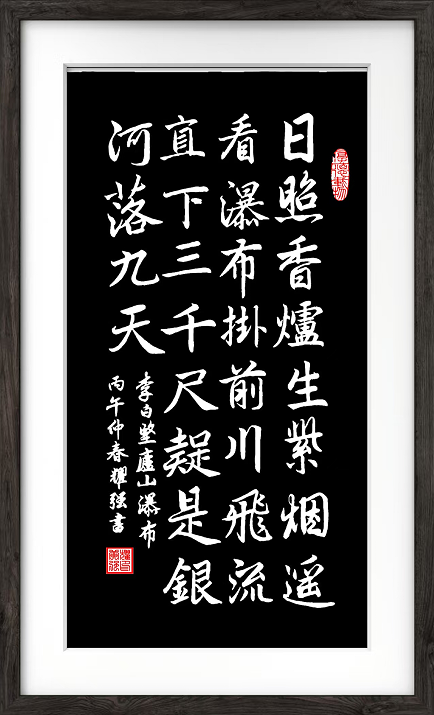 日照香爐生紫烟遥
看瀑布掛前川飛流
直下三千尺疑是銀
河落九天
李白望廬山瀑布
丙午仲春耀强書
厚德載物